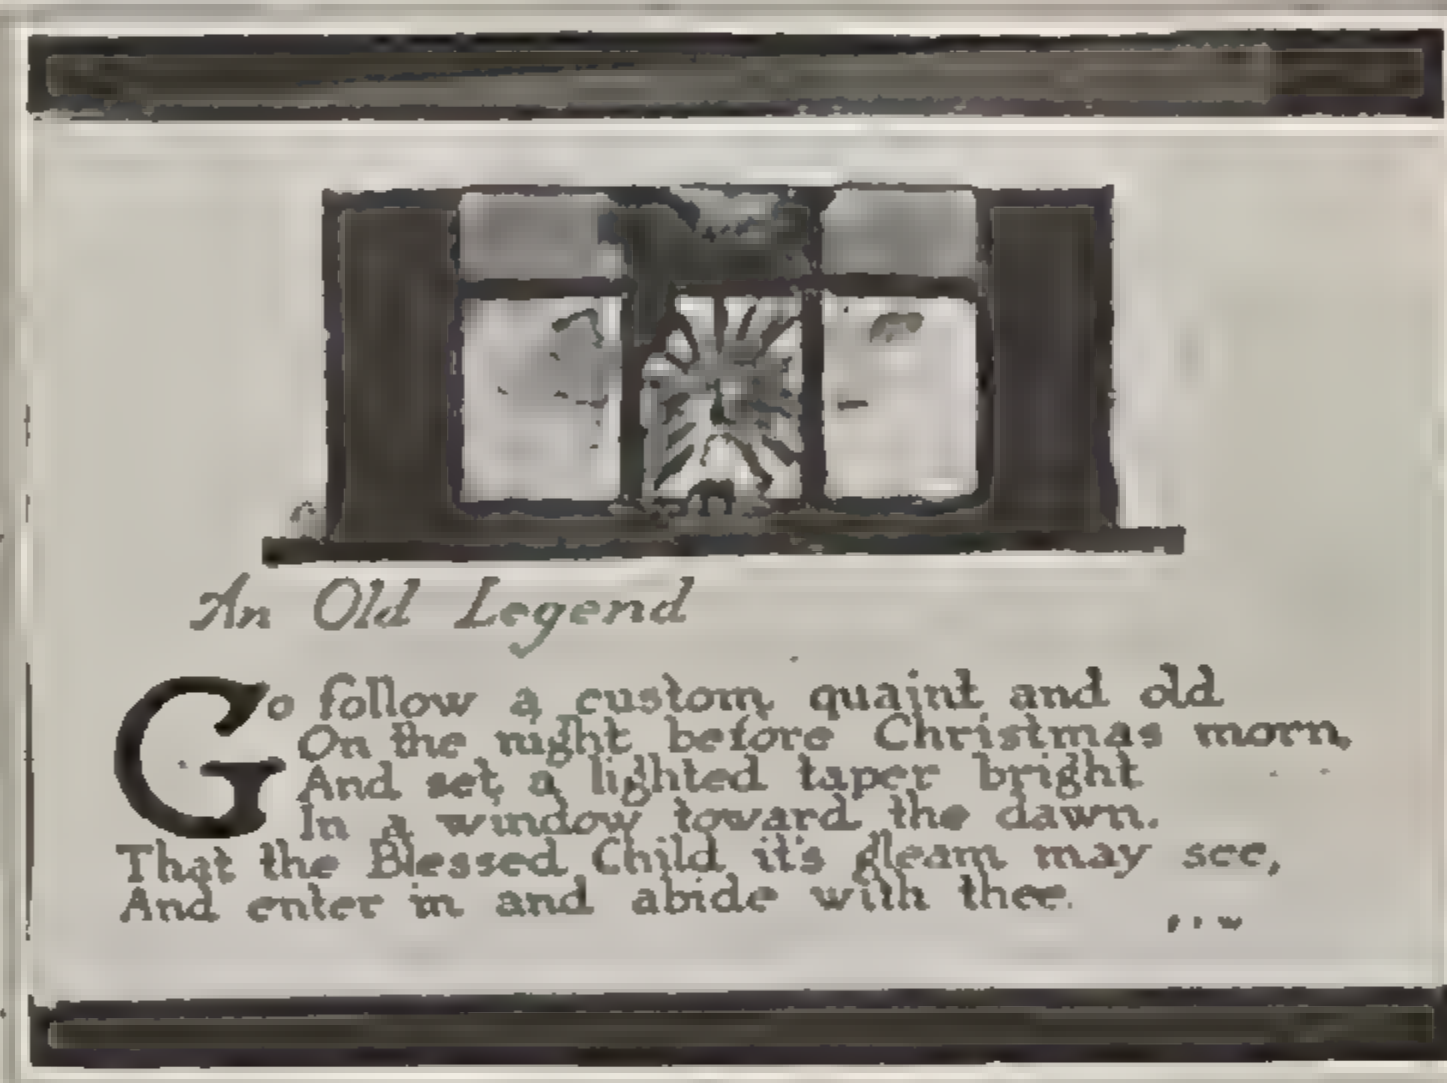 An Old Legend
Go follow a custom, quaint and old
On the night before Christmas morn,
And set a lighted taper bright
In a window toward the dawn.
That the Blessed Child it's gleam may see,
And enter in and abide with thee.